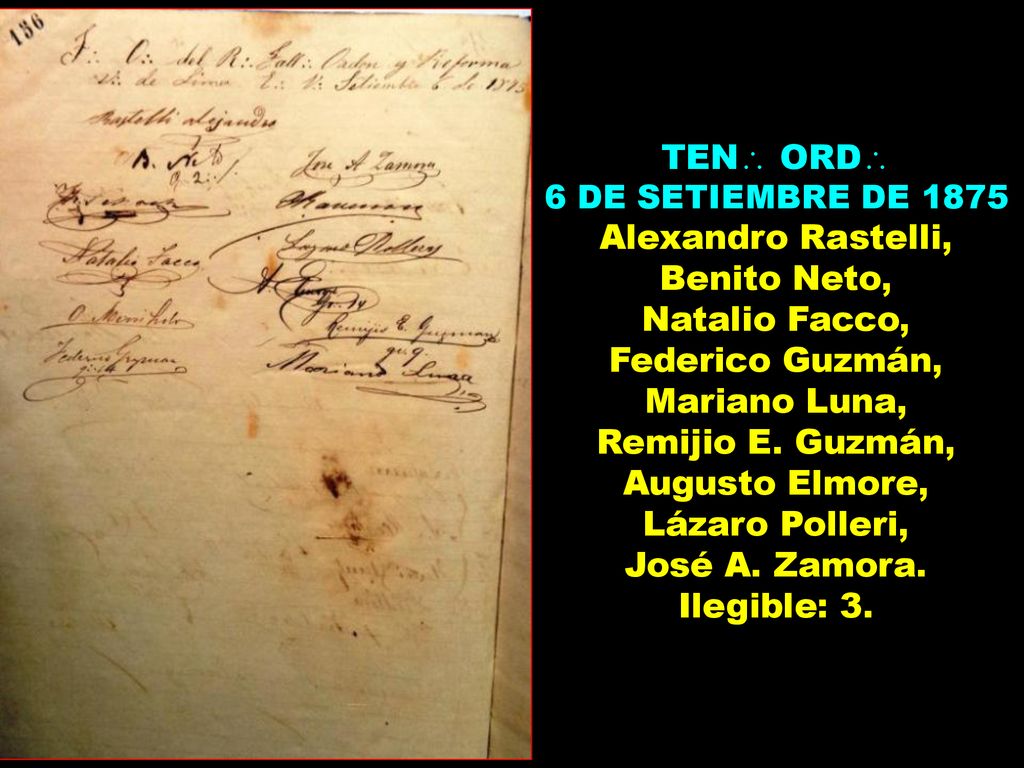 136
T∴ O∴ del R∴ Tall∴ Orden y Reforma
V∴ de Lima E∴ V∴ Setiembre 6 de 1875
Rastelli alejandro
B. Neto
José A Zamora
Natalio Facco
Lazaro Polleri
Remijio E. Guzman
Federico Guzman
Mariano Luna
TEN∴ ORD∴
6 DE SETIEMBRE DE 1875
Alexandro Rastelli,
Benito Neto,
Natalio Facco,
Federico Guzmán,
Mariano Luna,
Remijio E. Guzmán,
Augusto Elmore,
Lázaro Polleri,
José A. Zamora.
Ilegible: 3.